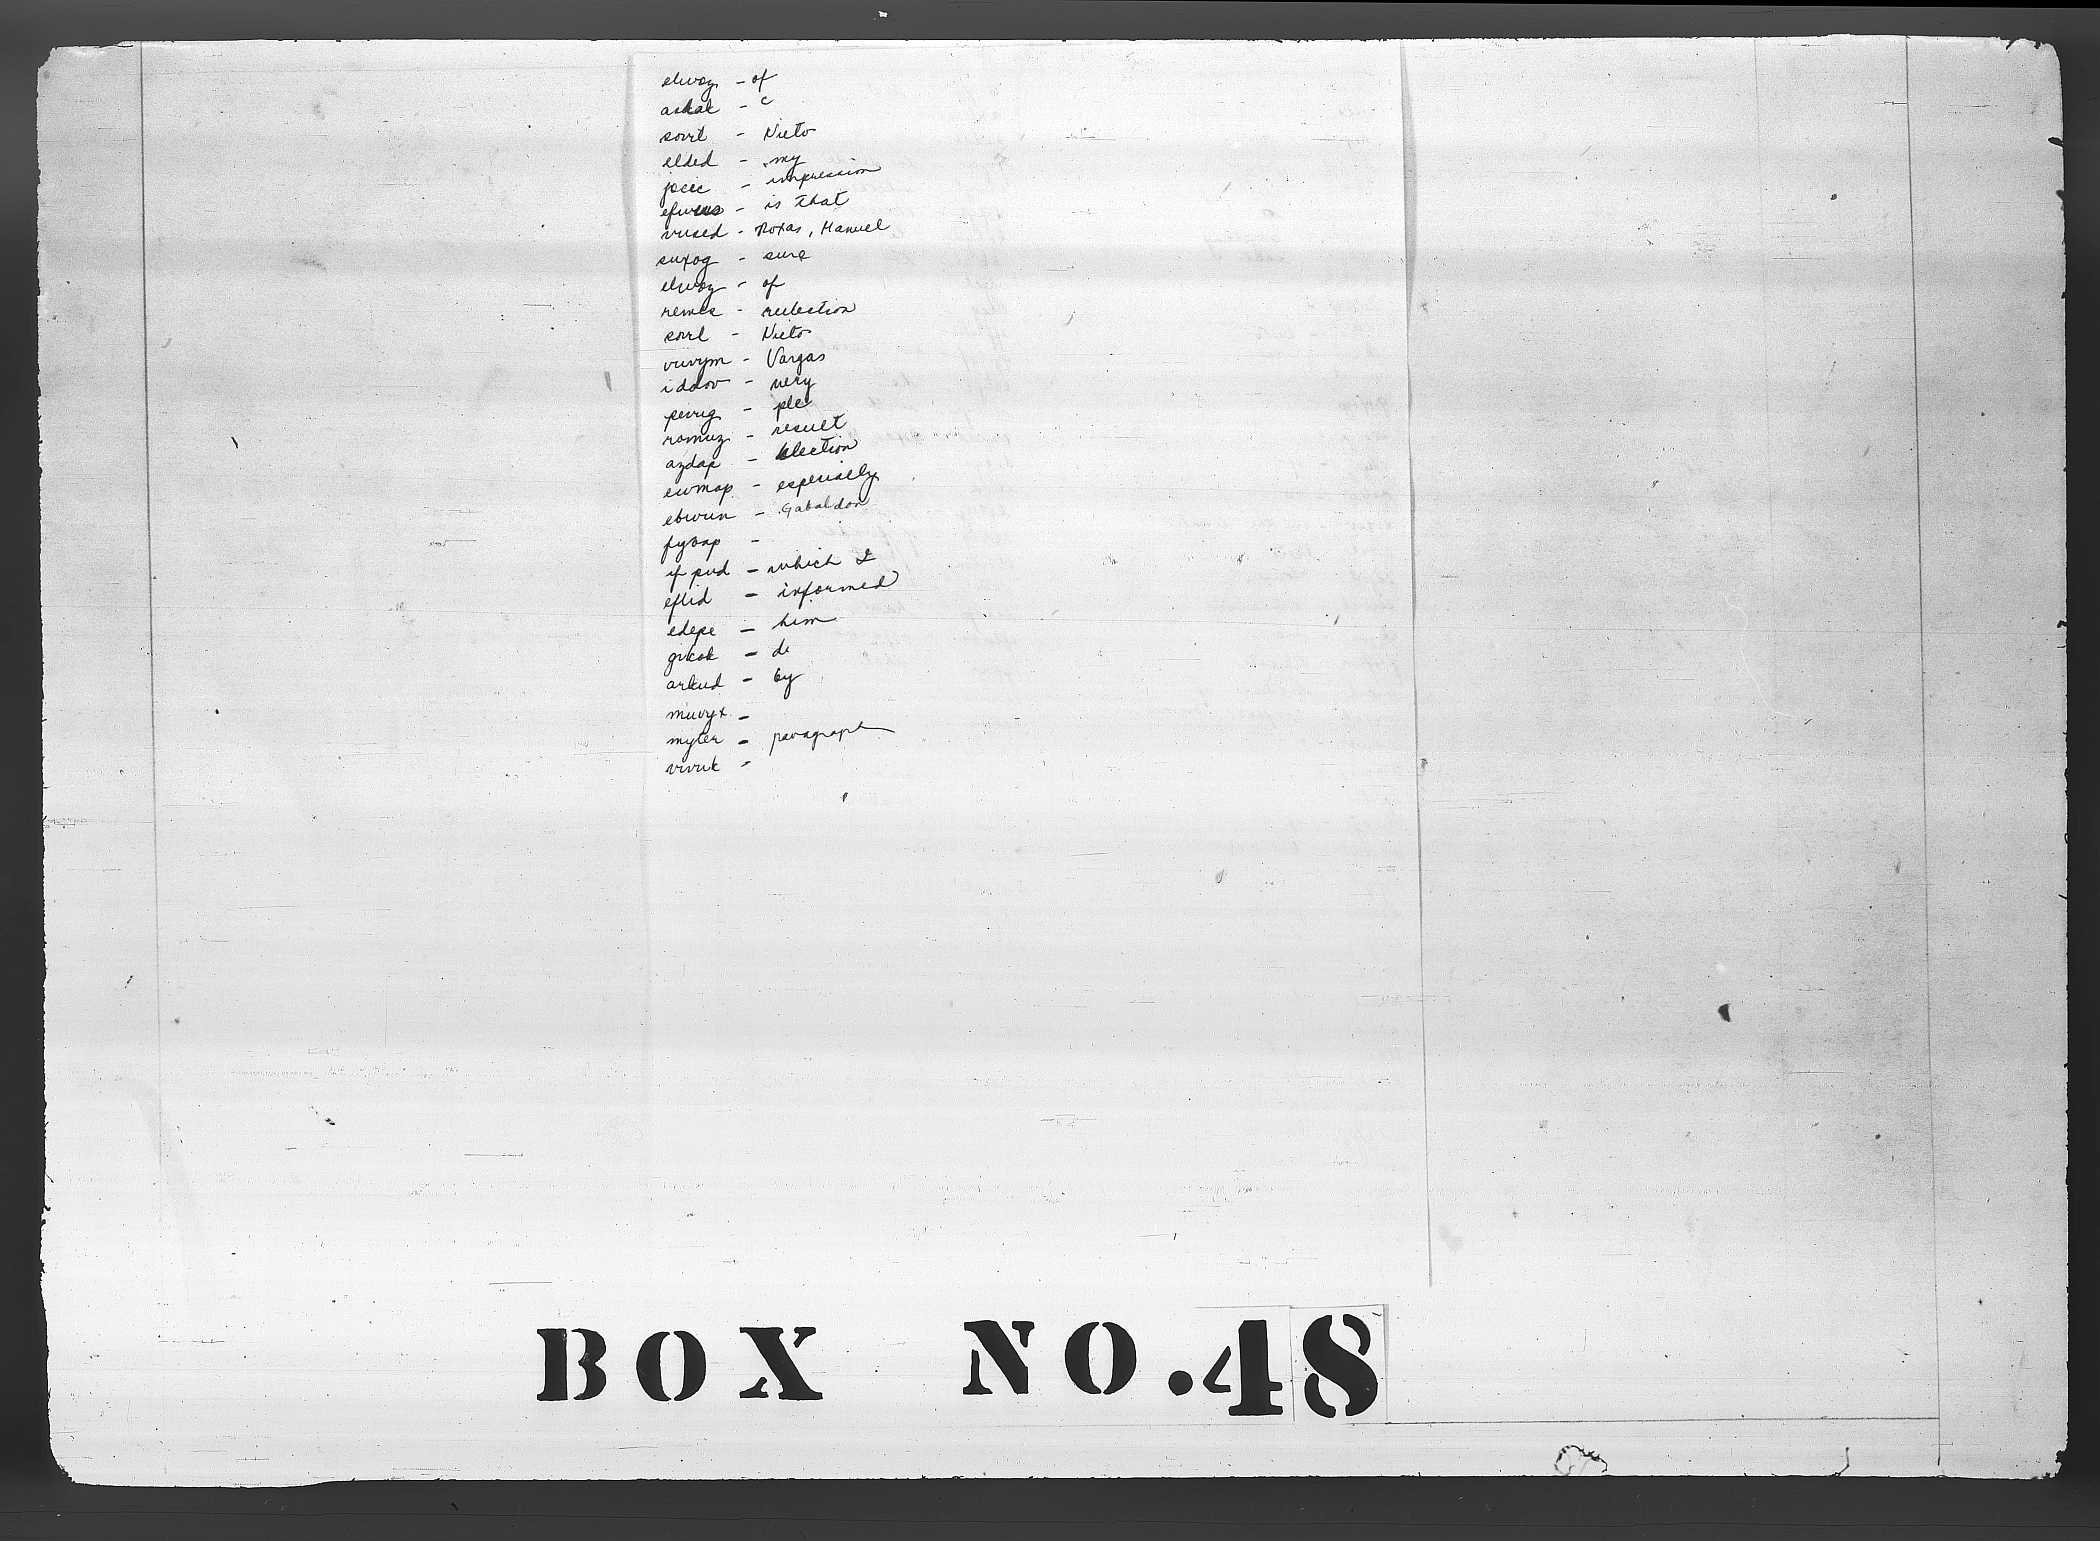 elwoz - of
askak - c
sovrl - Nieto
elded - my
jocic - impression
efwus - is that
vused - Roxas, Manuel
suxog - sure
elwoz - of
remcs - reelection
sovrl - Nieto
vuvym - Vargas
idolov - very
pevug - ple
romuz - result
azdap - election
ewmap - especially
ebwun - Gabaldon
fysap -
ifpud - which I
eflid - informed
edepe - him
gukok - de
arkud - by
muvyx -
myter - paragraph
vivuk -
BOX NO. 48